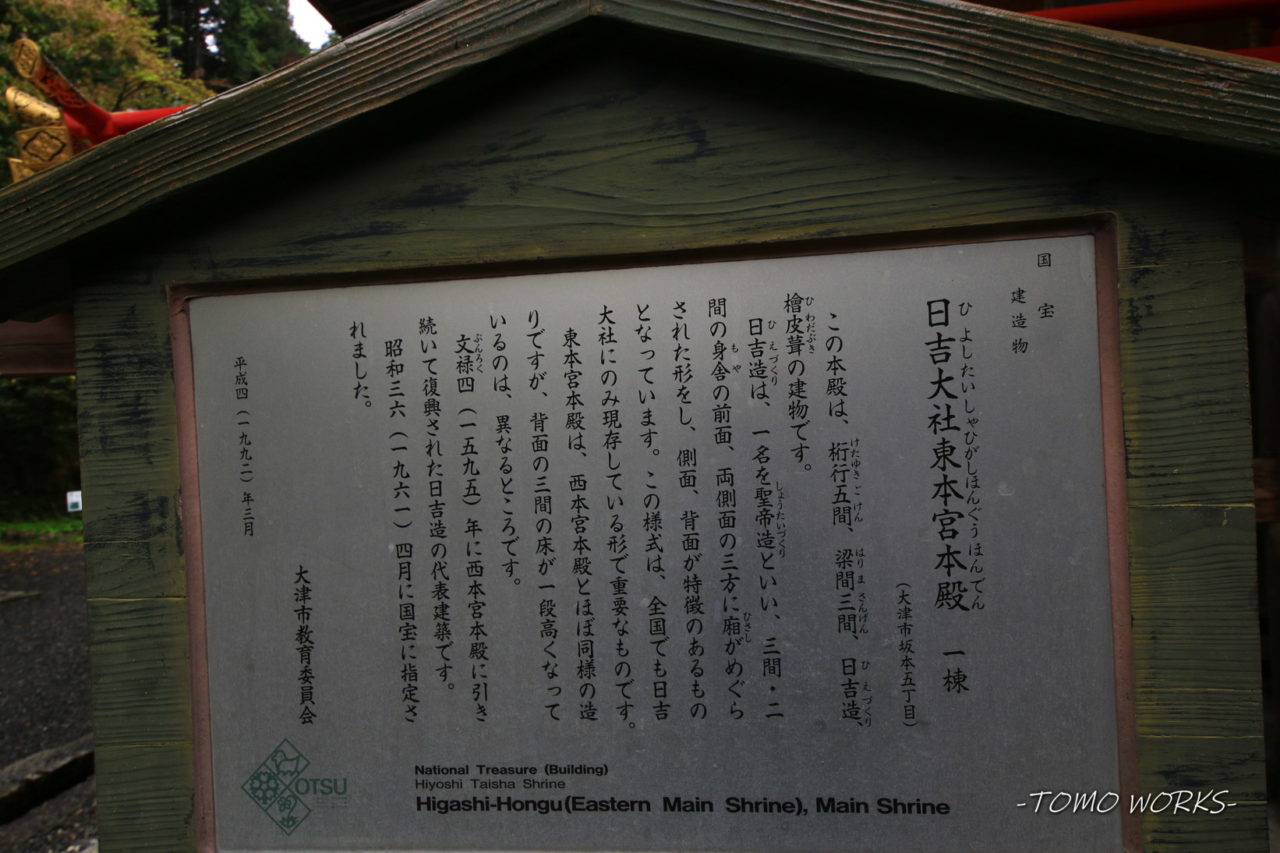 国宝
建造物
日吉大社東本宮本殿 一棟
ひよしたいしゃひがしほんぐうほんでん
(大津市坂本五丁目)
この本殿は、桁行五間、梁間三間、日吉造、
けたゆきごけん はりまさんげん ひえづくり
檜皮葺の建物です。
ひわだぶき
日吉造は、一名を聖帝造といい、三間・二
ひえづくり しょうたいづくり
間の身舎の前面、両側面の三方に廂がめぐら
もや ひさし
された形をし、側面、背面が特徴のあるもの
となっています。この様式は、全国でも日吉
大社にのみ現存している形で重要なものです。
東本宮本殿は、西本宮本殿とほぼ同様の造
りですが、背面の三間の床が一段高くなって
いるのは、異なるところです。
文禄四(一五九五)年に西本宮本殿に引き
ぶんろく
続いて復興された日吉造の代表建築です。
昭和三六(一九六一)四月に国宝に指定さ
れました。
平成四(一九九二)年三月
大津市教育委員会
OTSU
National Treasure (Building)
Hiyoshi Taisha Shrine
Higashi-Hongu(Eastern Main Shrine), Main Shrine
-TOMO WORKS-